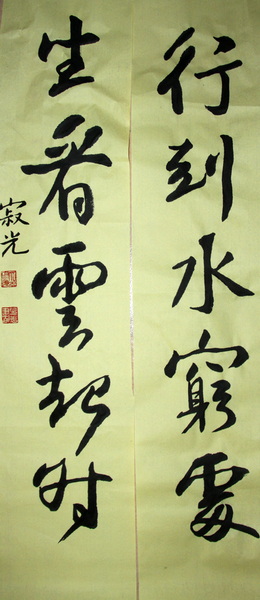 行到水窮處
坐看雲起时
寂光